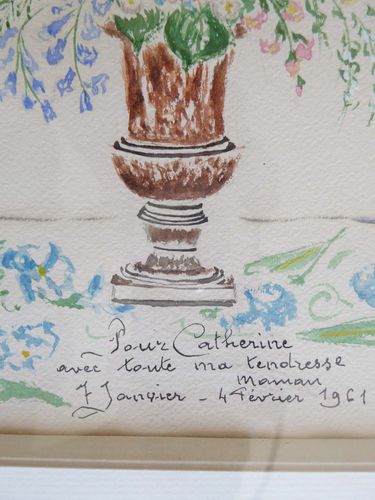 Pour Catherine
avec toute ma tendresse
maman
7 Janvier - 4 Février 1961